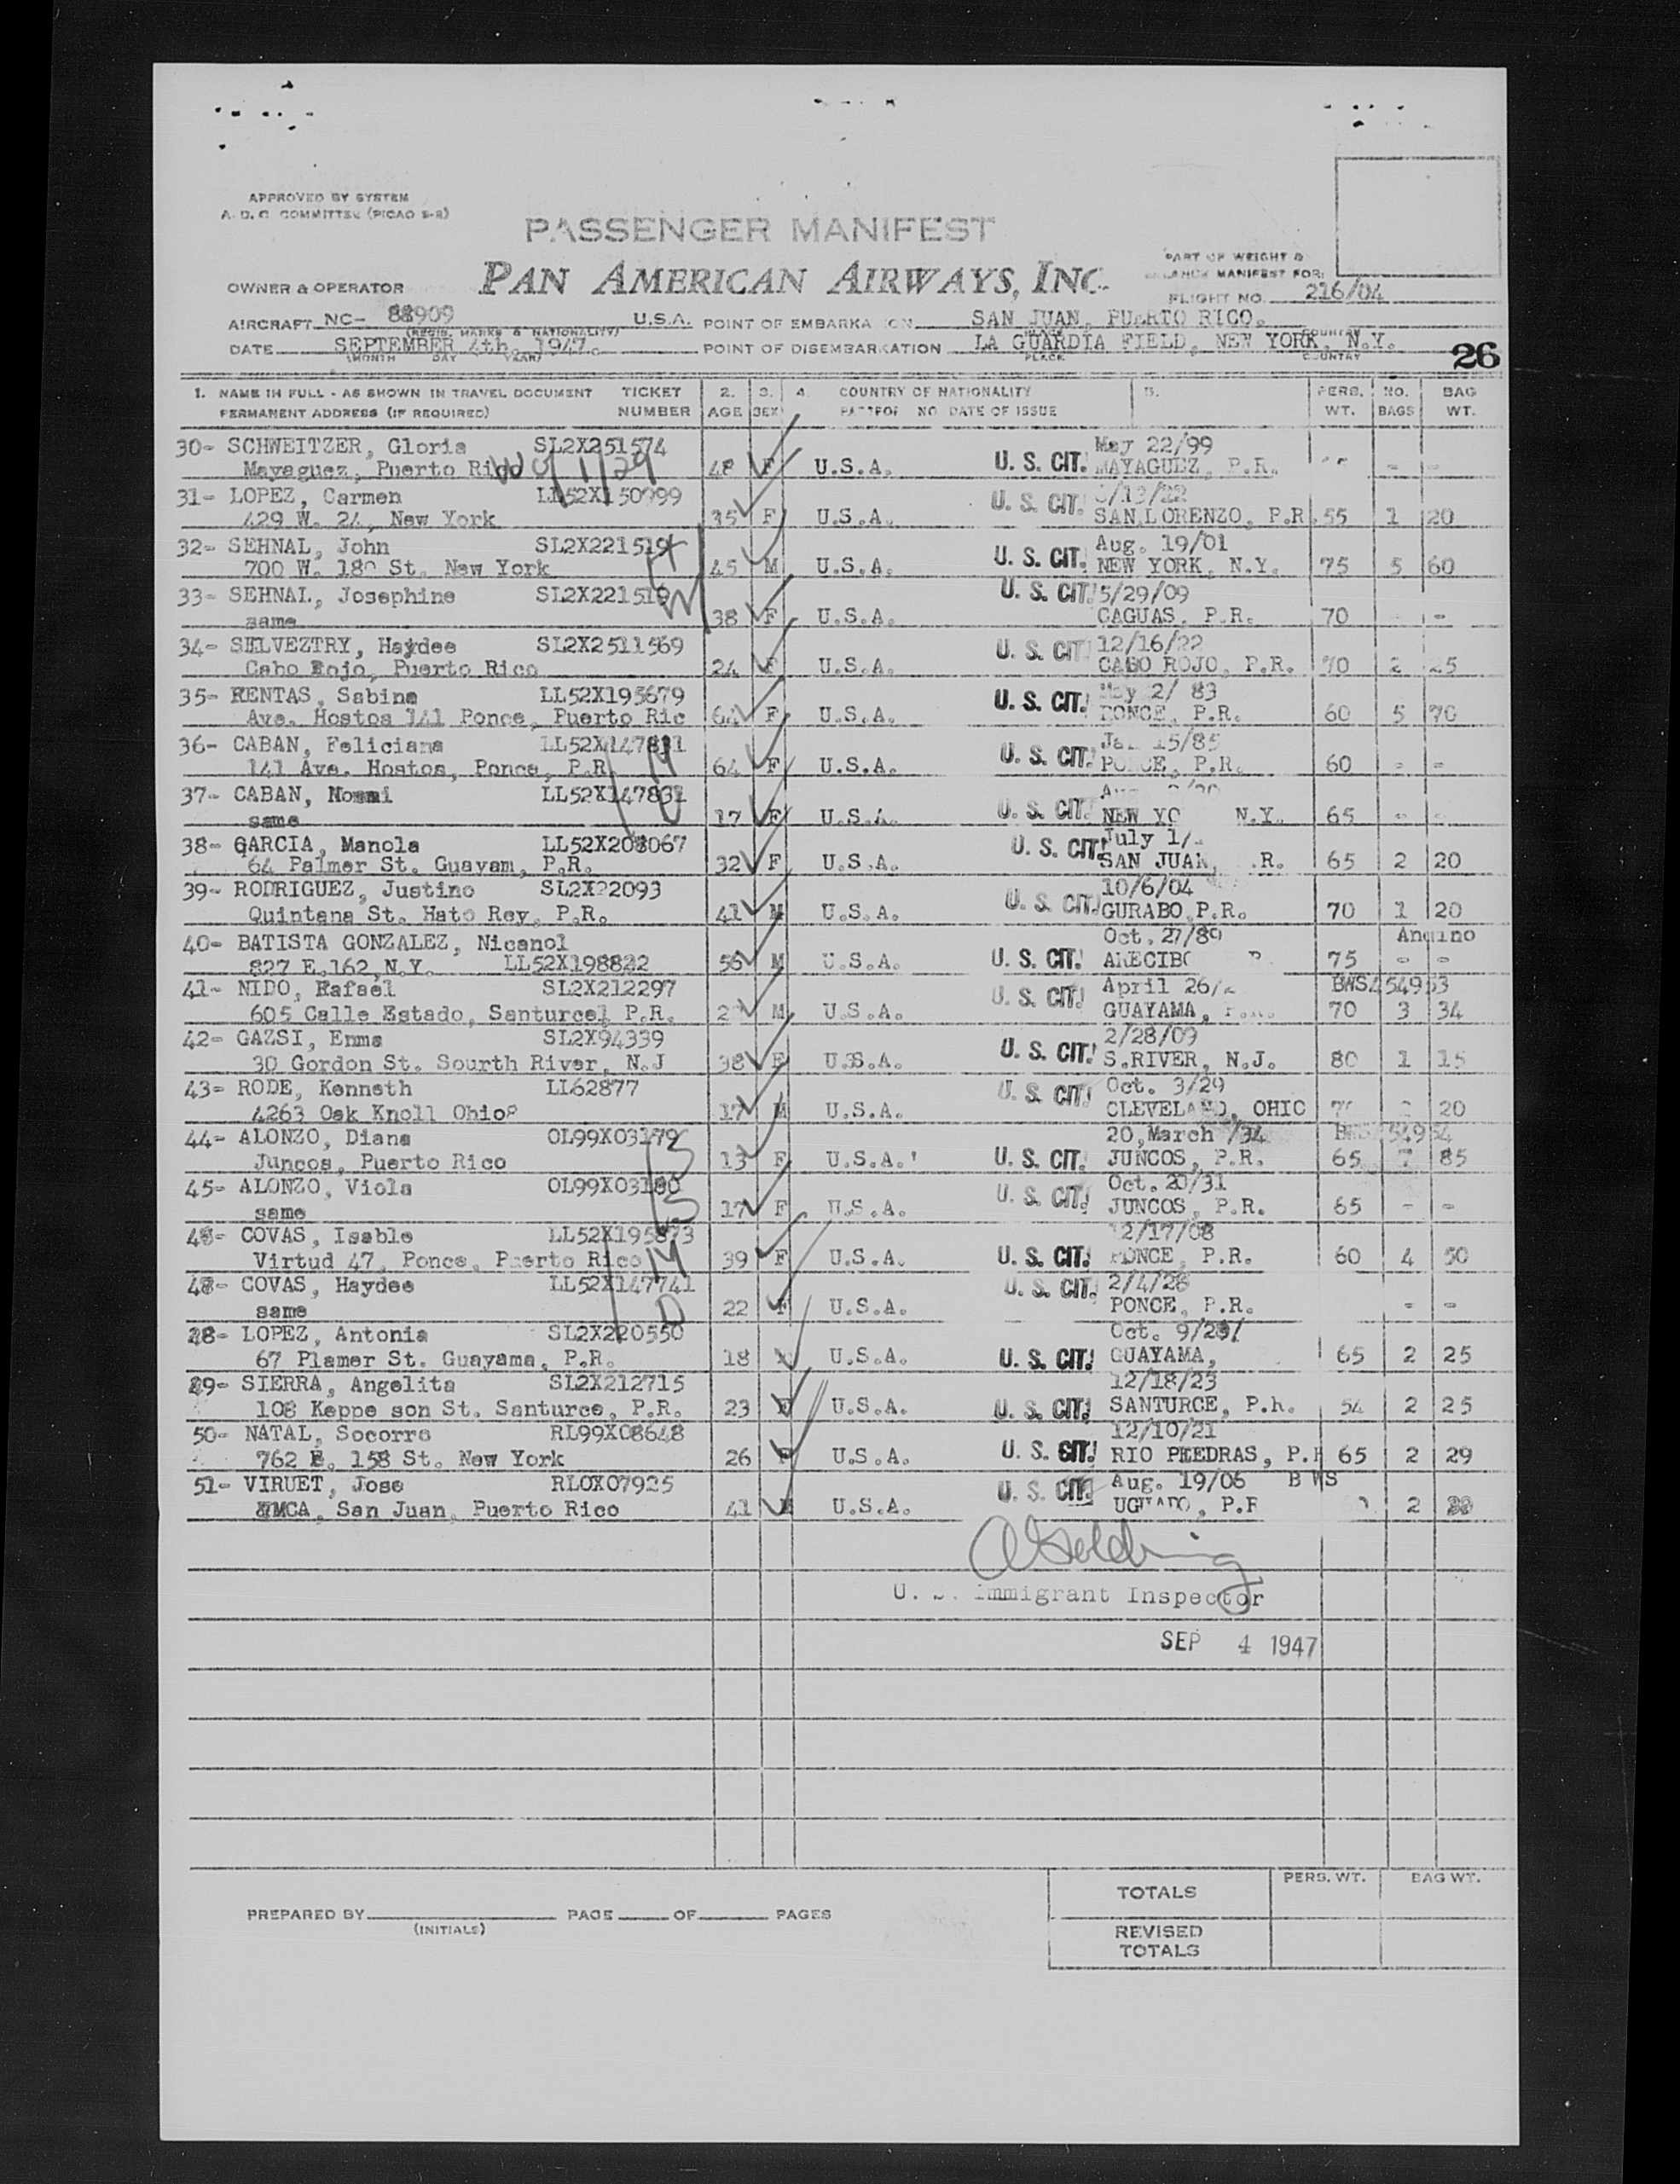 APPROVED BY SYSTEM
A. D. C. COMMITTEE (PICAO S-R)
PASSENGER MANIFEST
PAN AMERICAN AIRWAYS, INC.
PART OF WEIGHT &
MANIFEST FOR:
OWNER & OPERATOR
FLIGHT NO. 216/04
AIRCRAFT NC- 88909 U.S.A. POINT OF EMBARKA ION SAN JUAN, PUERTO RICO.
(REGIS. MARKS & NATIONALITY) PLACE COUNTRY
DATE SEPTEMBER 4th, 1947. POINT OF DISEMBARKATION LA GUARDIA FIELD, NEW YORK, N.Y.
(MONTH DAY YEAR) PLACE COUNTRY
26
1. NAME IN FULL - AS SHOWN IN TRAVEL DOCUMENT TICKET 2. 3. 4. COUNTRY OF NATIONALITY 5. PERS. NO. BAG
PERMANENT ADDRESS (IF REQUIRED) NUMBER AGE SEX NO DATE OF ISSUE WT. BAGS WT.
30- SCHWEITZER, Gloria SL2X251574 May 22/99
Mayaguez, Puerto Rico 48 F U.S.A. U. S. CIT. MAYAGUEZ, P.R. - -
31- LOPEZ, Carmen LL52X150999 /13/22
429 W. 24, New York 35 F U.S.A. U. S. CIT. SAN LORENZO, P.R. 55 1 20
32- SEHNAL, John SL2X221519 Aug. 19/01
700 W. 180 St. New York 45 M U.S.A. U. S. CIT. NEW YORK, N.Y. 75 5 60
33- SEHNAL, Josephine SL2X221519 U. S. CIT. 5/29/09
same 38 F U.S.A. CAGUAS, P.R. 70 - -
34- SELVEZTRY, Haydee SL2X2511569 12/16/22
Cabo Rojo, Puerto Rico 24 F U.S.A. U. S. CIT CABO ROJO, P.R. 70 2 25
35- RENTAS, Sabina LL52X195679 May 2/ 83
Ave. Hostos 141 Ponce, Puerto Ric 64 F U.S.A. U. S. CIT. PONCE, P.R. 60 5 70
36- CABAN, Feliciana LL52X147831 15/85
141 Ave. Hostos, Ponce, P.R. 64 F U.S.A. U. S. CIT. PONCE, P.R. 60 - -
37- CABAN, Noemi LL52X147832
same 17 F U.S.A. U. S. CIT. NEW YO N.Y. 65 - -
38- GARCIA, Manola LL52X208067 July 1/
64 Palmer St. Guayam, P.R. 32 F U.S.A. U. S. CIT. SAN JUAN, .R. 65 2 20
39- RODRIGUEZ, Justino SL2X22093 10/6/04
Quintana St. Hato Rey, P.R. 41 M U.S.A. U. S. CIT. GURABO, P.R. 70 1 20
40- BATISTA GONZALEZ, Nicanol Oct. 27/89
827 E.162, N.Y. LL52X198822 56 M U.S.A. U. S. CIT. ARECIBO 75 - -
41- NIDO, Rafael SL2X212297 April 26/ BWS454953
605 Calle Estado, Santurce, P.R. M U.S.A. U. S. CIT. GUAYAMA, 70 3 34
42- GAZSI, Emma SL2X94339 2/28/09
30 Gordon St. Sourth River, N.J 38 F U.S.A. U. S. CIT. S.RIVER, N.J. 80 1 15
43- RODE, Kenneth LL62877 Oct. 3/29
4263 Oak Knoll Ohio 17 M U.S.A. U. S. CIT. CLEVELAND, OHIO 20
44- ALONZO, Diana OL99X03179 20, March /34
Juncos, Puerto Rico 13 F U.S.A.' U. S. CIT. JUNCOS, P.R. 65 7 85
45- ALONZO, Viola OL99X03180 Oct. 20/31
same 17 F U.S.A. U. S. CIT. JUNCOS, P.R. 65 - -
46- COVAS, Isable LL52X195873 12/17/08
Virtud 47, Ponce, Puerto Rico 39 F U.S.A. U. S. CIT. PONCE, P.R. 60 4 50
48- COVAS, Haydee LL52X147741 2/4/26
same 22 F U.S.A. U. S. CIT. PONCE, P.R. - -
48- LOPEZ, Antonia SL2X220550 Oct. 9/29/
67 Plamer St. Guayama, P.R. 18 U.S.A. U. S. CIT. GUAYAMA, 65 2 25
49- SIERRA, Angelita SL2X212715 12/18/23
108 Keppe son St. Santurce, P.R. 23 F U.S.A. U. S. CIT. SANTURCE, P.R. 54 2 25
50- NATAL, Socorro RL99X08648 12/10/21
762 E. 158 St. New York 26 F U.S.A. U. S. CIT. RIO PIEDRAS, P.R 65 2 29
51- VIRUET, Jose RLOX07925 Aug. 19/06 BWS
YMCA, San Juan, Puerto Rico 41 U.S.A. U. S. CIT. P.R 2
U. S. Immigrant Inspector
SEP 4 1947
PERS. WT. BAG WT.
TOTALS
PREPARED BY PAGE OF PAGES
(INITIALS)
REVISED
TOTALS